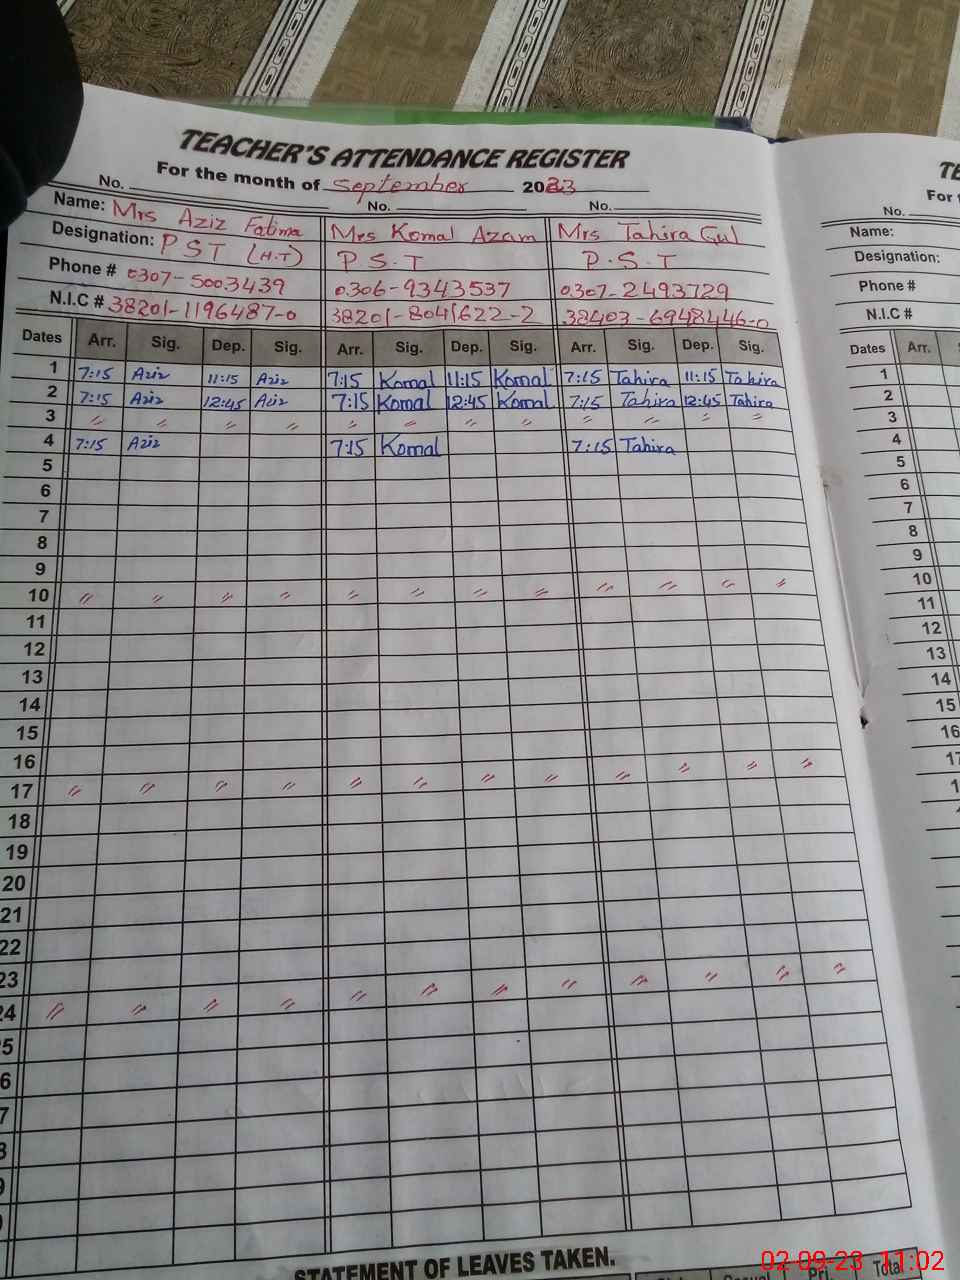 TEACHER'S ATTENDANCE REGISTER
For the month of September 2023
No. No. No.
Name: Mrs Aziz Fatima Mrs Komal Azam Mrs Tahira Gul
Designation: P S T (H.T) P S.T P.S.T
Phone # 0307-5003439 0306-9343537 0307-2493729
N.I.C # 38201-1196487-0 38201-8041622-2 38403-6948446-0
Dates Arr. Sig. Dep. Sig. Arr. Sig. Dep. Sig. Arr. Sig. Dep. Sig.
1 7:15 Aziz 11:15 Aziz 7:15 Komal 11:15 Komal 7:15 Tahira 11:15 Tahira
2 7:15 Aziz 12:45 Aziz 7:15 Komal 12:45 Komal 7:15 Tahira 12:45 Tahira
3 〃 〃 〃 〃 〃 〃 〃 〃 〃 〃 〃 〃
4 7:15 Aziz 7:15 Komal 7:15 Tahira
5
6
7
8
9
10 〃 〃 〃 〃 〃 〃 〃 〃 〃 〃 〃 〃
11
12
13
14
15
16
17 〃 〃 〃 〃 〃 〃 〃 〃 〃 〃 〃 〃
18
19
20
21
22
23
24 〃 〃 〃 〃 〃 〃 〃 〃 〃 〃 〃 〃
5
6
7
8
9
STATEMENT OF LEAVES TAKEN.
Pri Total
TE
For
No.
Name:
Designation:
Phone #
N.I.C #
Dates Arr.
1
2
3
4
5
6
7
8
9
10
11
12
13
14
15
16
17
02-09-23 11:02